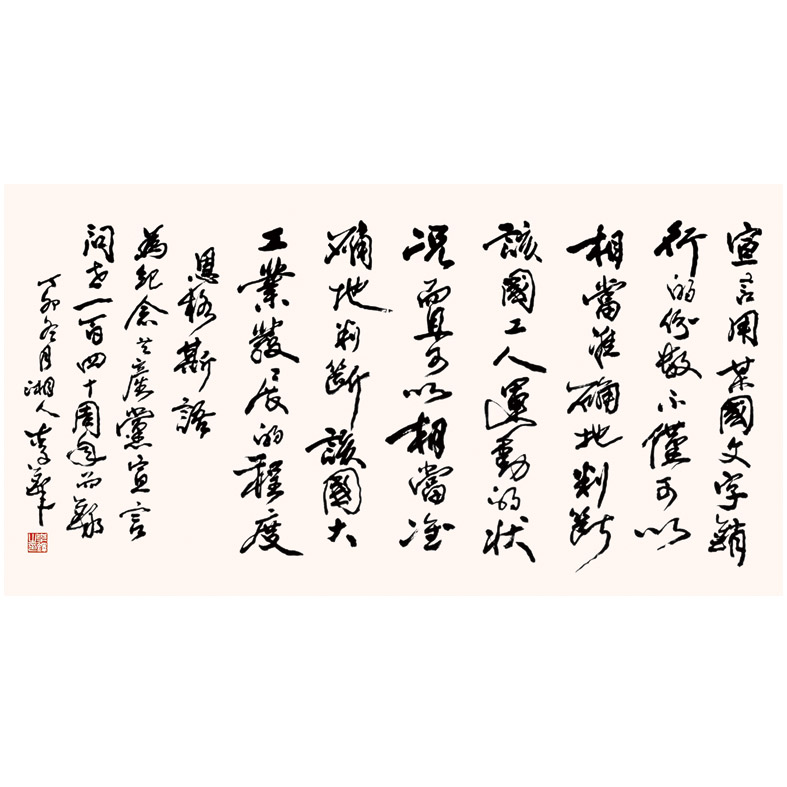 宣言用某國文字銷
行的份數不僅可以
相當准確地判斷
該國工人運動的狀
況而且可以相當准
確地判斷該國大
工業發展的程度
恩格斯語
為紀念共產黨宣言
問世一百四十周年而
丁卯冬月湘人李鐸